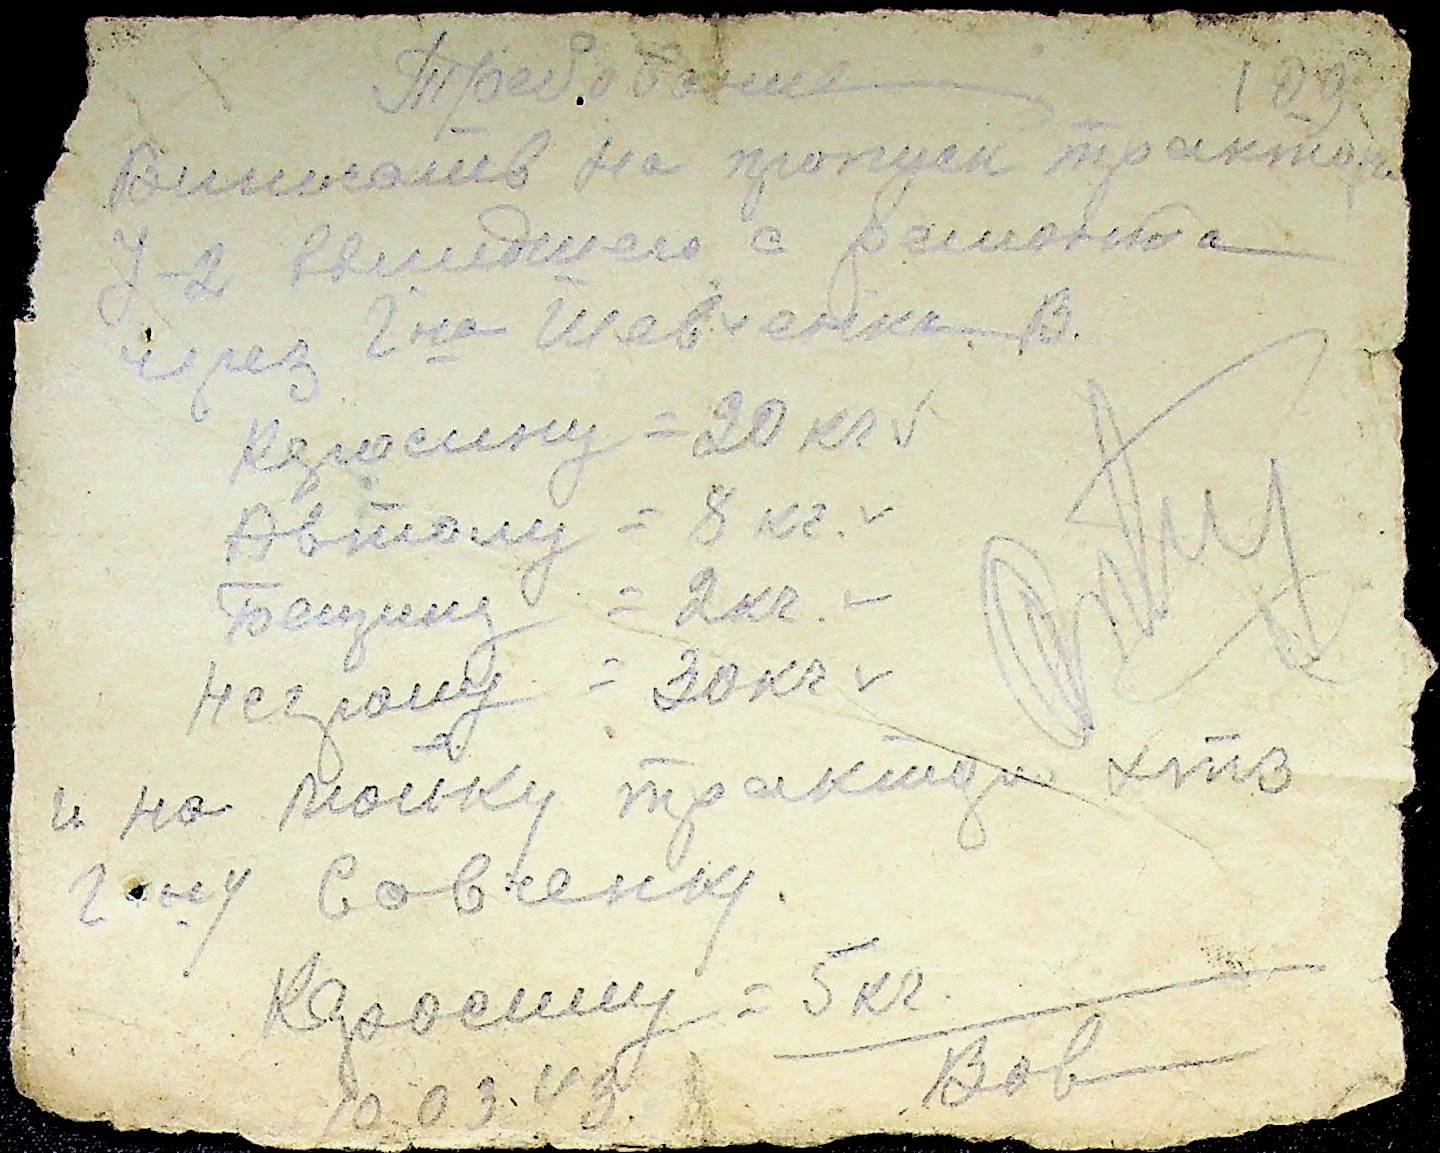 Требование 100
на пропуск трактора
У-2 вышедшего с ремонта
через Г-на Шевченко В.
Керосину = 20 кг
Автолу = 8 кг.
Бензину = 2 кг.
Негролу = 30 кг
и на мойку трактора ХТПЗ
Г-ну Савченку.
Керосину = 5 кг
Вов
03.43.